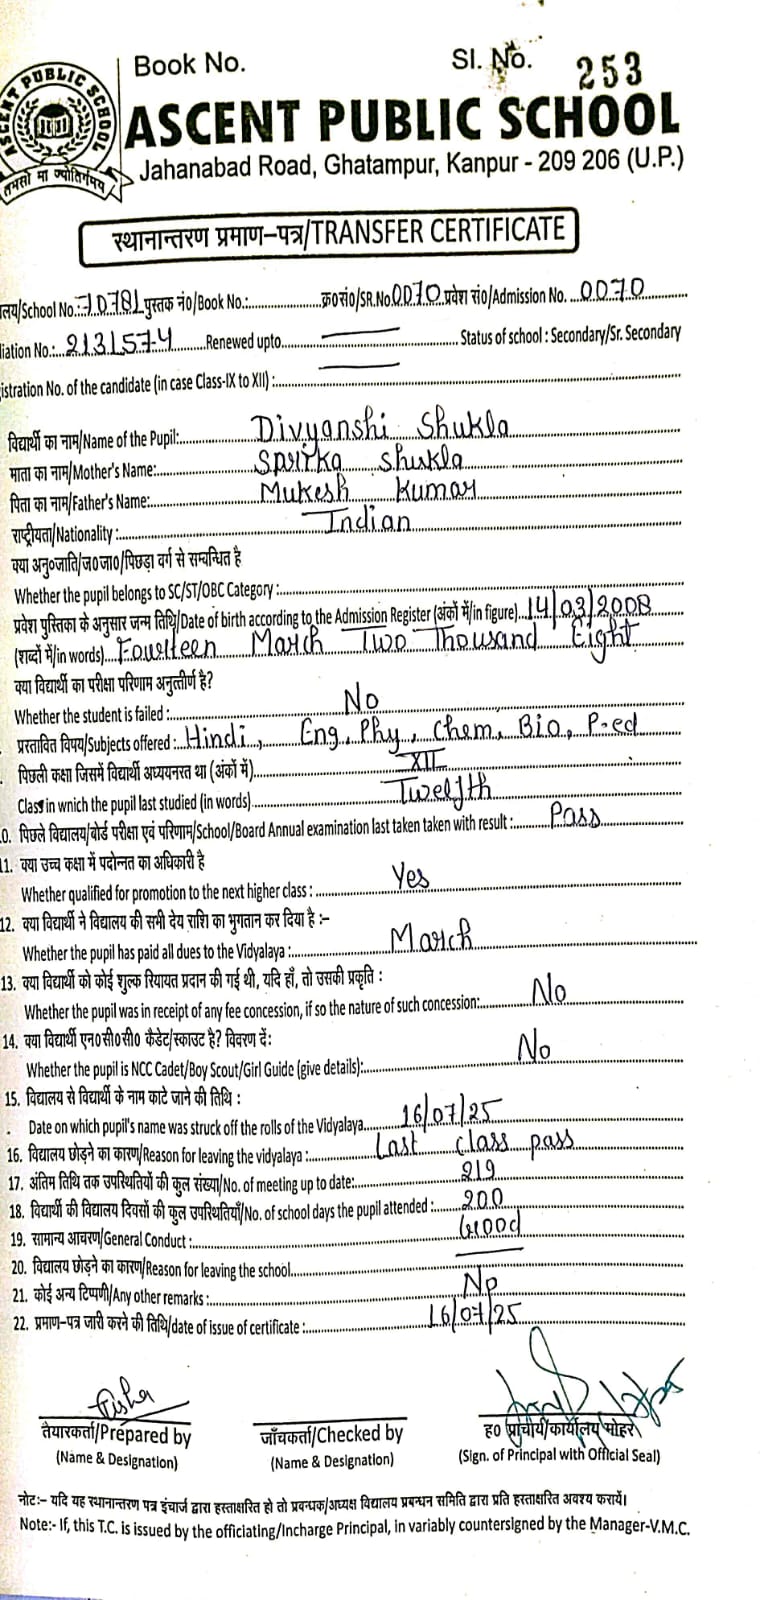 ASCENT PUBLIC SCHOOL
तमसो मा ज्योतिर्गमय
Book No. Sl. No. 253
ASCENT PUBLIC SCHOOL
Jahanabad Road, Ghatampur, Kanpur - 209 206 (U.P.)
स्थानान्तरण प्रमाण-पत्र/TRANSFER CERTIFICATE
लय/School No.: 70781 पुस्तक नं०/Book No.:..........क्र०सं०/SR.No 0070 प्रवेश सं०/Admission No. 0070
iation No.: 2131574 Renewed upto.......... Status of school : Secondary/Sr. Secondary
istration No. of the candidate (in case Class-IX to XII) :
विद्यार्थी का नाम/Name of the Pupil: Divyanshi Shukla
माता का नाम/Mother's Name: Shukla
पिता का नाम/Father's Name: Mukesh Kumar
राष्ट्रीयता/Nationality : Indian
क्या अनु०जाति/ज०जा०/पिछड़ा वर्ग से सम्बन्धित है
Whether the pupil belongs to SC/ST/OBC Category :
प्रवेश पुस्तिका के अनुसार जन्म तिथि/Date of birth according to the Admission Register (अंकों में/in figure) 14/03/2008
(शब्दों में/in words) Fourteen March Two Thousand Eight
क्या विद्यार्थी का परीक्षा परिणाम अनुत्तीर्ण है?
Whether the student is failed : No
प्रस्तावित विषय/Subjects offered : Hindi, Eng, Phy, Chem, Bio, P-ed
पिछली कक्षा जिसमें विद्यार्थी अध्ययनरत था (अंकों में) XII
Class in wnich the pupil last studied (in words) Twelfth
0. पिछले विद्यालय/बोर्ड परीक्षा एवं परिणाम/School/Board Annual examination last taken taken with result : Pass
11. क्या उच्च कक्षा में पदोन्नत का अधिकारी है
Whether qualified for promotion to the next higher class : Yes
12. क्या विद्यार्थी ने विद्यालय की सभी देय राशि का भुगतान कर दिया है :-
Whether the pupil has paid all dues to the Vidyalaya : March
13. क्या विद्यार्थी को कोई शुल्क रियायत प्रदान की गई थी, यदि हाँ, तो उसकी प्रकृति :
Whether the pupil was in receipt of any fee concession, if so the nature of such concession: No
14. क्या विद्यार्थी एन०सी०सी० कैडेट/स्काउट है? विवरण दें:
Whether the pupil is NCC Cadet/Boy Scout/Girl Guide (give details): No
15. विद्यालय से विद्यार्थी के नाम काटे जाने की तिथि :
. Date on which pupil's name was struck off the rolls of the Vidyalaya 16/07/25
16. विद्यालय छोड़ने का कारण/Reason for leaving the vidyalaya : Last class pass
17. अंतिम तिथि तक उपस्थितियों की कुल संख्या/No. of meeting up to date: 219
18. विद्यार्थी की विद्यालय दिवसों की कुल उपस्थितियाँ/No. of school days the pupil attended : 200
19. सामान्य आचरण/General Conduct : Good
20. विद्यालय छोड़ने का कारण/Reason for leaving the school
21. कोई अन्य टिप्पणी/Any other remarks : No
22. प्रमाण-पत्र जारी करने की तिथि/date of issue of certificate : 16/07/25
तैयारकर्ता/Prepared by जाँचकर्ता/Checked by ह० प्राचार्य/कार्यालय मोहर
(Name & Designation) (Name & Designation) (Sign. of Principal with Official Seal)
नोट:- यदि यह स्थानान्तरण पत्र इंचार्ज द्वारा हस्ताक्षरित हो तो प्रबन्धक/अध्यक्ष विद्यालय प्रबन्धन समिति द्वारा प्रति हस्ताक्षरित अवश्य करायें।
Note:- If, this T.C. is issued by the officiating/Incharge Principal, in variably countersigned by the Manager-V.M.C.